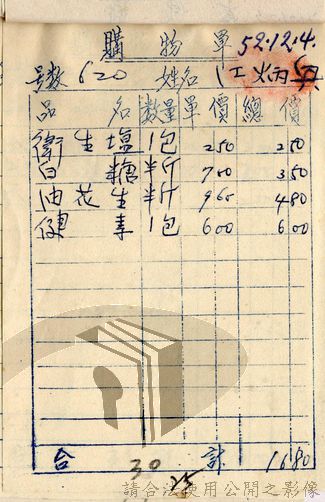 購物單 52.12.4.
号数 620 姓名 江炳興
品名 数量 單價 總價
衛生塩 1包 250 250
白糖 半斤 700 350
油花生 半斤 960 480
健素 1包 600 600
合計 1680
30
25
請合法使用公開之影像